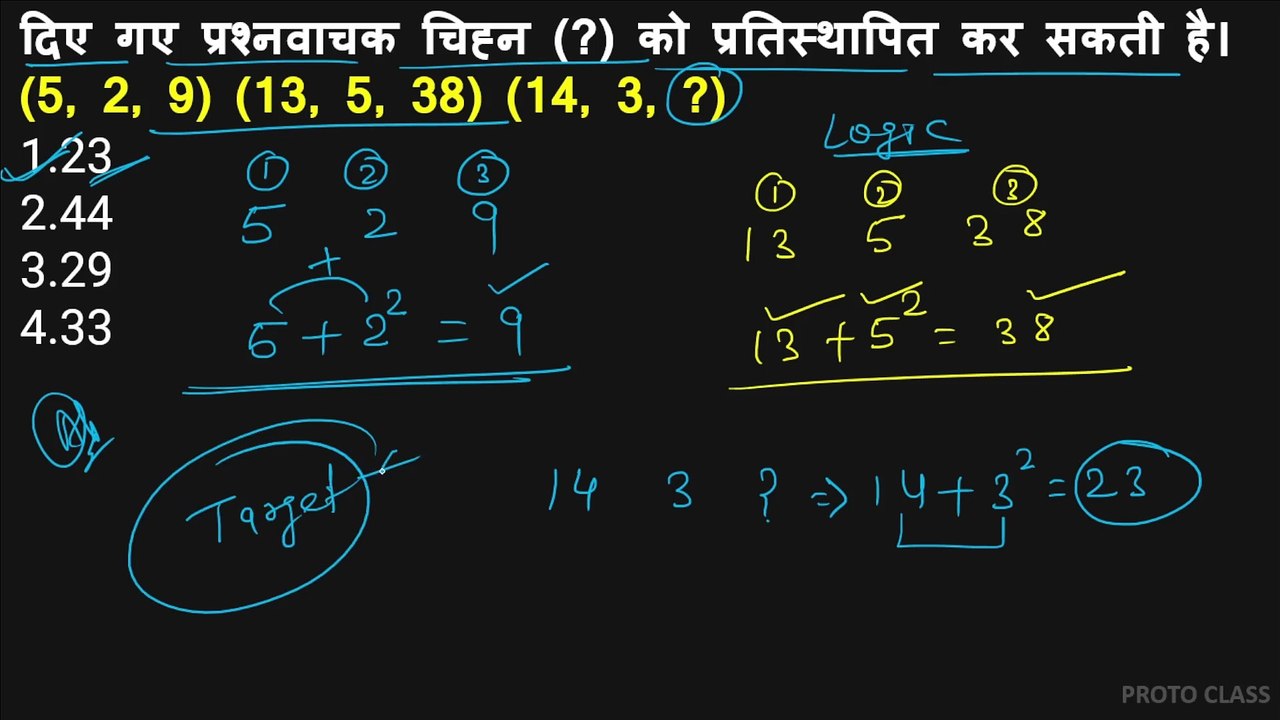 दिए गए प्रश्नवाचक चिह्न (?) को प्रतिस्थापित कर सकती है।
(5, 2, 9) (13, 5, 38) (14, 3, ?)
Logic
1.23
2.44
3.29
4.33
① ② ③
5 2 9
+
5 + 2² = 9
① ② ③
13 5 38
13 + 5² = 38
Target
14 3 ? ⇒ 14 + 3² = 23
PROTO CLASS